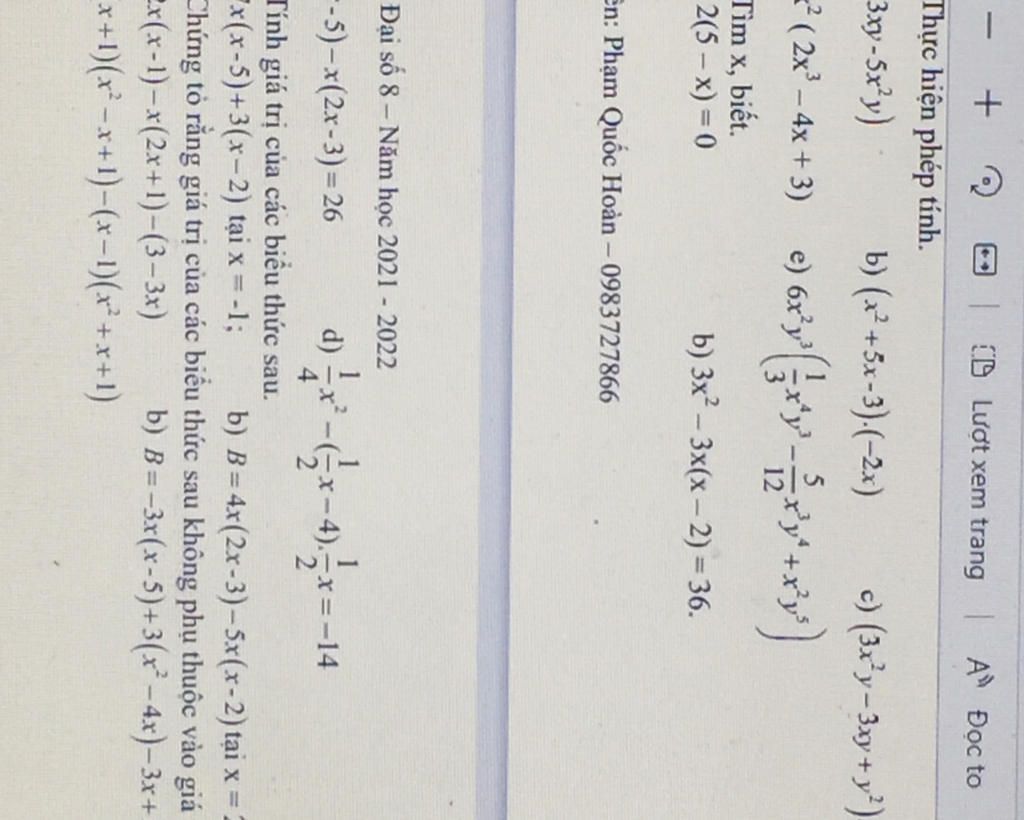 Lượt xem trang | A Đọc to
Thực hiện phép tính.
3xy - 5x²y) b) (x² + 5x - 3).(-2x) c) (3x²y - 3xy + y²)
x² ( 2x³ - 4x + 3) e) 6x²y³ (1/3 x⁴y³ - 5/12 x³y⁴ + x²y⁵)
Tìm x, biết.
2(5 - x) = 0 b) 3x² - 3x(x - 2) = 36.
ên: Phạm Quốc Hoàn - 0983727866
Đại số 8 – Năm học 2021 - 2022
- 5) - x(2x - 3) = 26 d) 1/4 x² - (1/2 x - 4).1/2 x = -14
Tính giá trị của các biểu thức sau.
7x(x - 5) + 3(x - 2) tại x = -1; b) B = 4x(2x - 3) - 5x(x - 2) tại x =
Chứng tỏ rằng giá trị của các biểu thức sau không phụ thuộc vào giá
2x(x - 1) - x(2x + 1) - (3 - 3x) b) B = -3x(x - 5) + 3(x² - 4x) - 3x +
x + 1)(x² - x + 1) - (x - 1)(x² + x + 1)